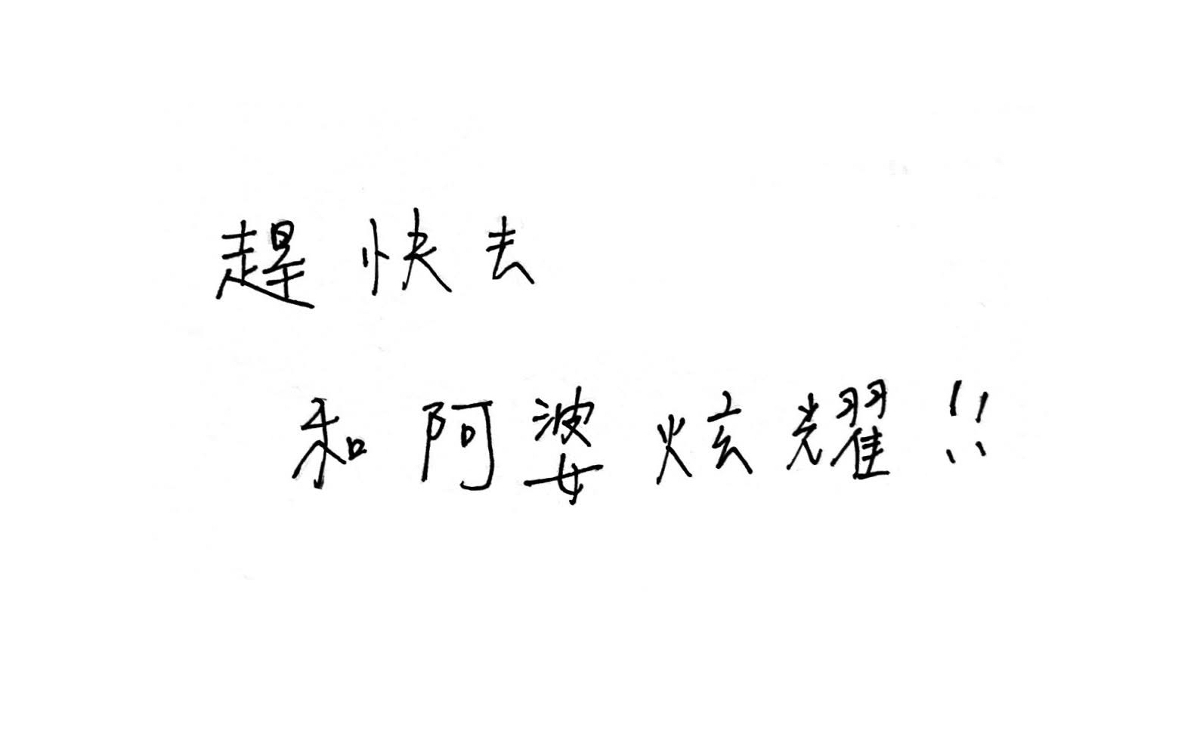 趕快去
和阿婆炫耀!!